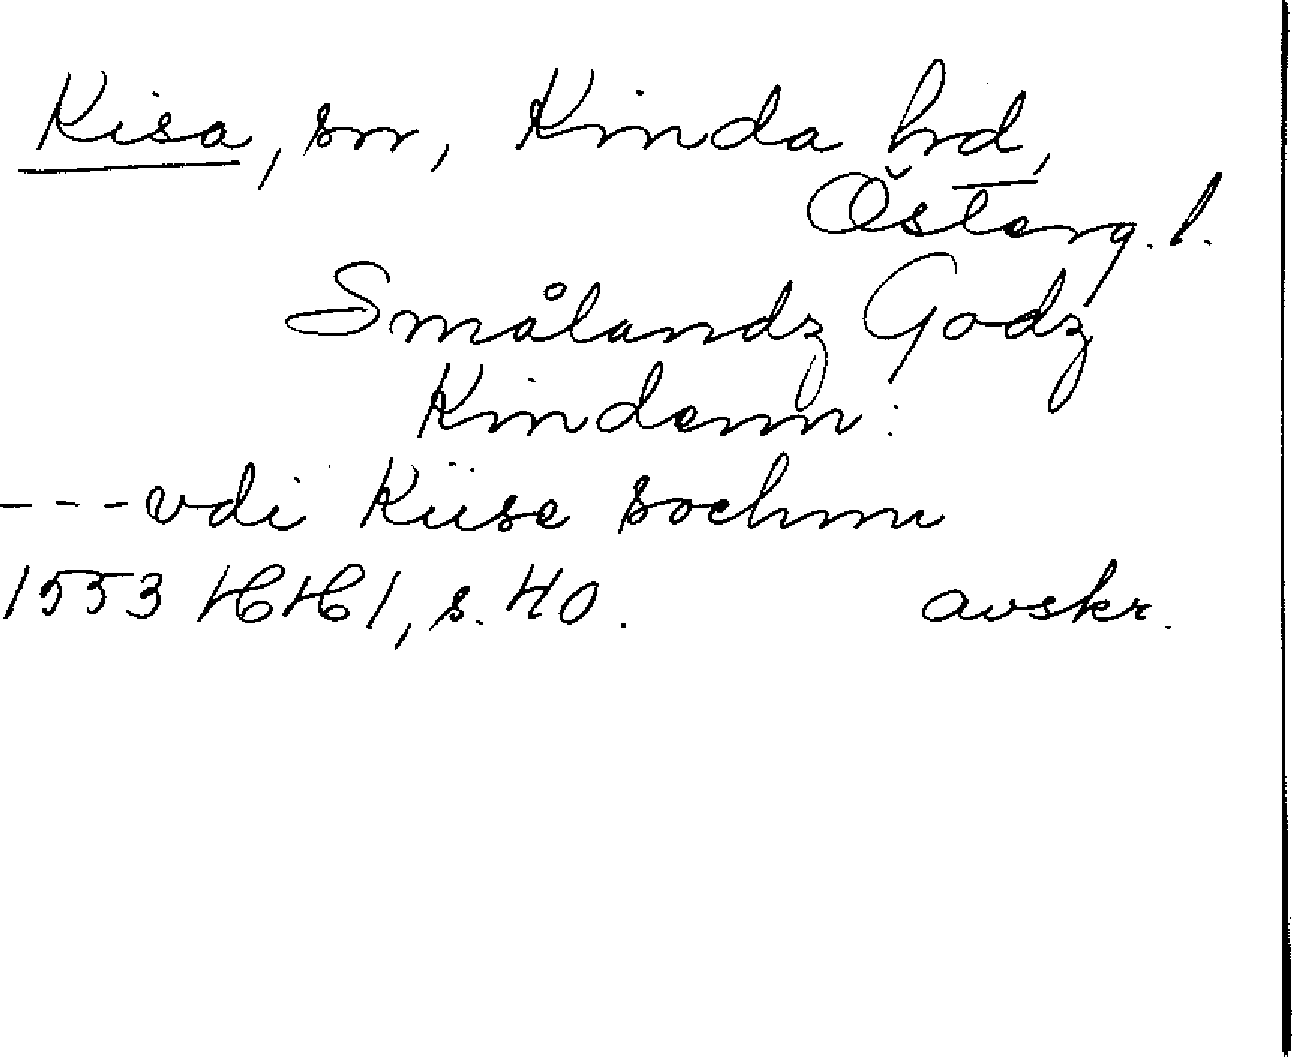 Kisa, sn, Kinda hd,
Österg. l.
Smålandz Godz
Kindenn:
---vdi Kiise sochnn
1553 HH 1, s. 40. avskr.